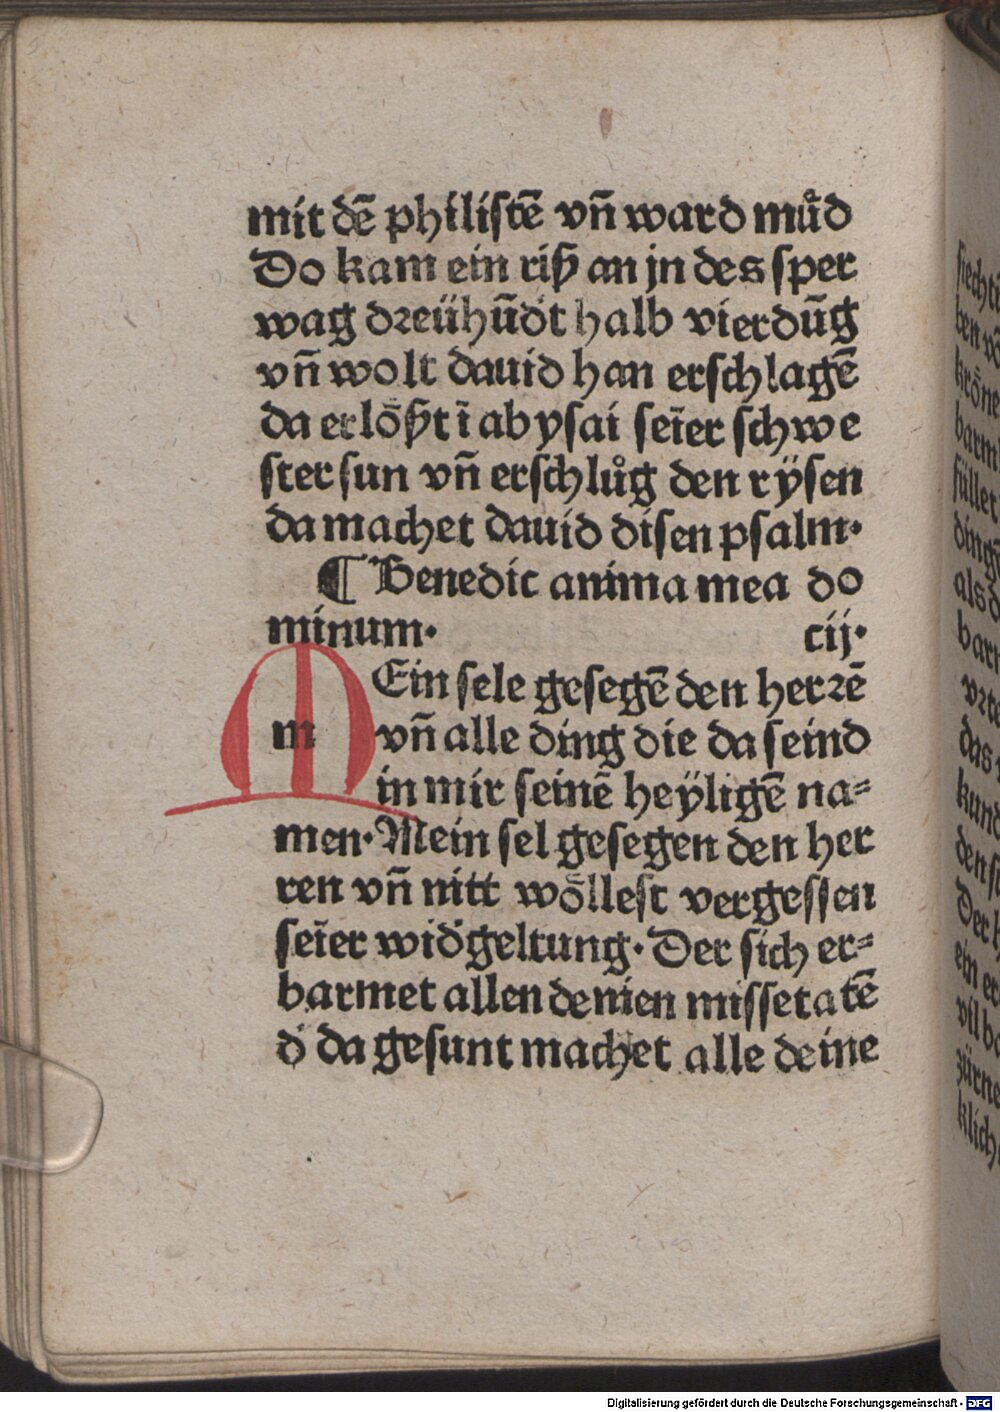 mit dē philistē vn̄ ward můd
Do kam ein riß an jn des sper
wag dreühūdt halb vierdūg
vn̄ wolt dauid han erschlagē
da erlößt ī abysai seīer schwe
ster sun vn̄ erschlůg den rÿsen
da machet dauid disen psalm·
¶ Benedic anima mea do
minum· cij·
MEin sele gesegē den herrē
vn̄ alle ding die da seind
in mir seinē heÿligē na⸗
men· Mein sel gesegen den her
ren vn̄ nitt wöllest vergessen
seīer wid̓geltung· Der sich er⸗
barmet allen denien missetatē
d̓ da gesunt machet alle deine
Digitalisierung gefördert durch die Deutsche Forschungsgemeinschaft - DFG